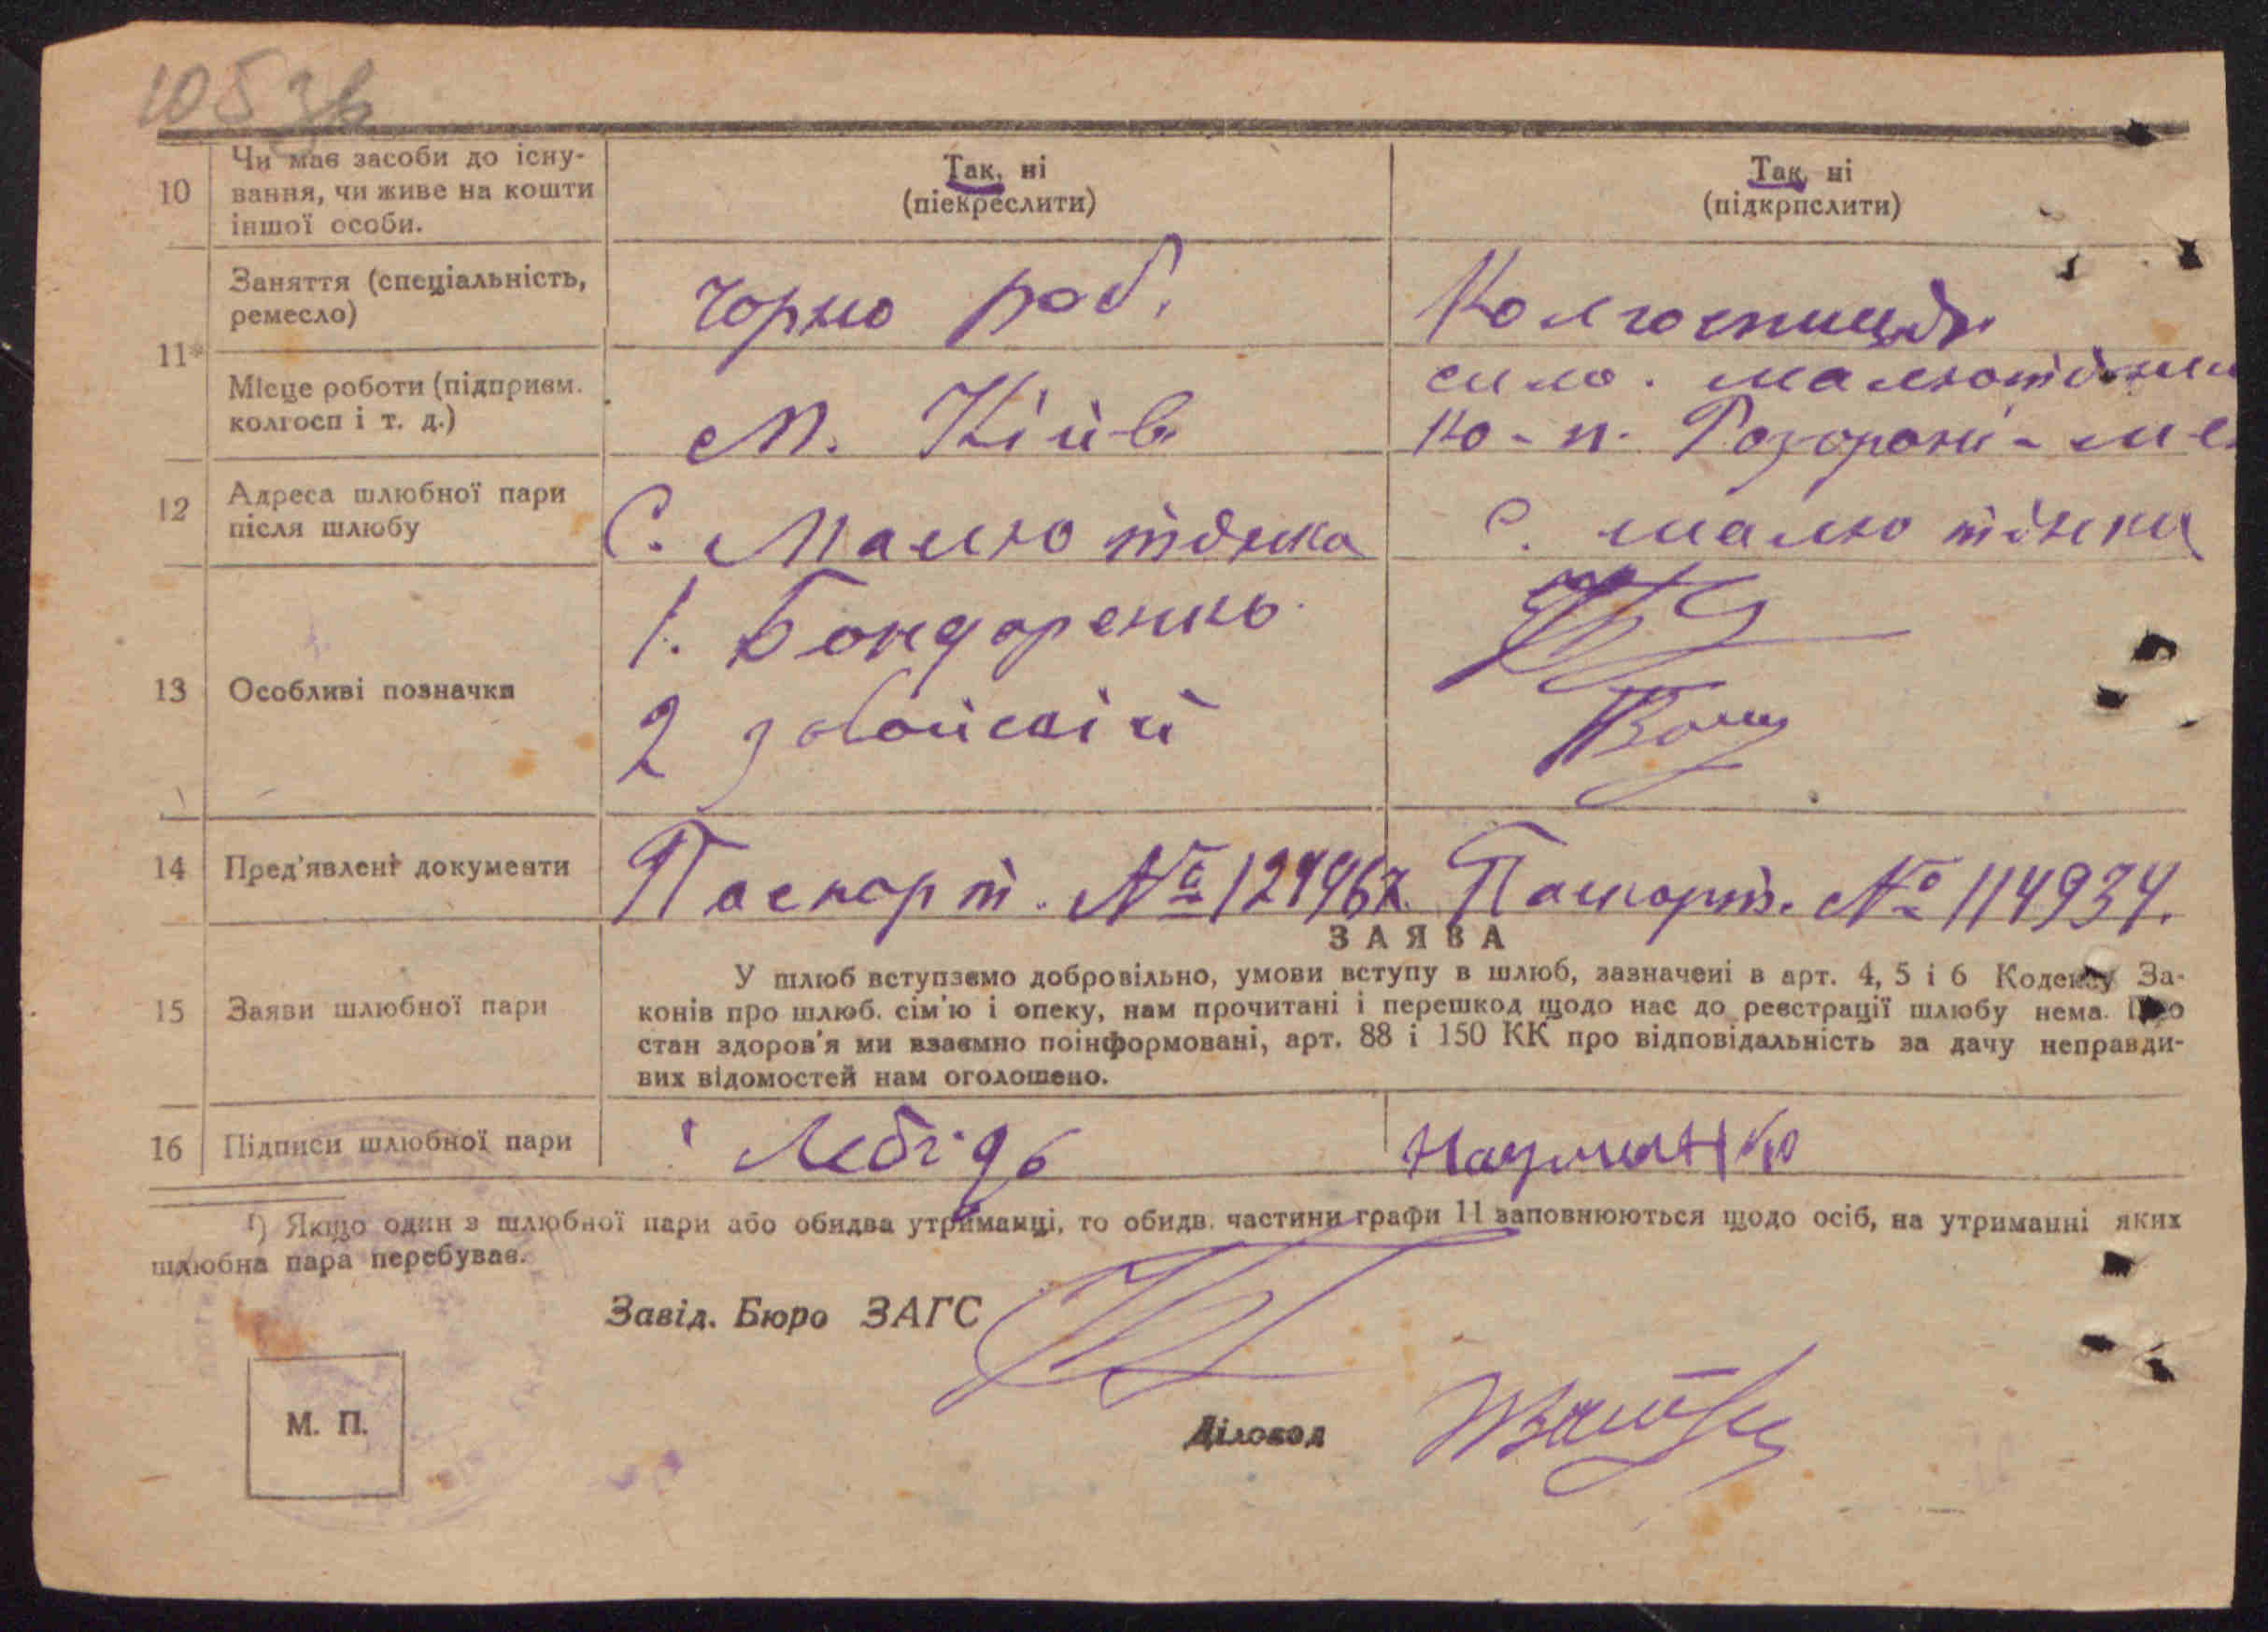 105 зв
10 Чи має засоби до існу-
вання, чи живе на кошти
іншої особи.
Так, ні
(піекреслити)
Так, ні
(підкрпслити)
11*
Заняття (спеціальність,
ремесло)
Чорно роб.
Колгоспниця
Місце роботи (підприєм.
колгосп і т. д.)
М. Київ
село. Малютінка
к-п.
12 Адреса шлюбної пари
після шлюбу
С. Малютінка
с. малютінка
13 Особливі позначки
1. Бондоренко
2
14 Пред'явлені документи
Паспорт. № 129967.
Паспорт. № 114934.
ЗАЯВА
15 Заяви шлюбної пари
У шлюб вступзємо добровільно, умови вступу в шлюб, зазначені в арт. 4, 5 і 6 Кодексу За-
конів про шлюб. сім'ю і опеку, нам прочитані і перешкод щодо нас до реєстрації шлюбу нема. Про
стан здоров'я ми взаємно поінформовані, арт. 88 і 150 КК про відповідальність за дачу неправди-
вих відомостей нам оголошено.
16 Підписи шлюбної пари
Лебідь
Науменко
¹) Якщо один з шлюбної пари або обидва утриманці, то обидв. частини графи 11 заповнюються щодо осіб, на утриманні яких
шлюбна пара перебуває.
Завід. Бюро ЗАГС
М. П.
Діловод